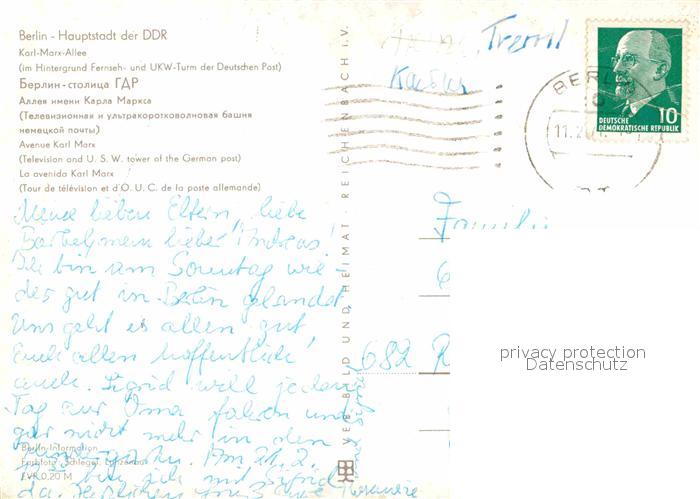 Berlin - Hauptstadt der DDR
Karl-Marx-Allee
(im Hintergrund Fernseh- und UKW-Turm der Deutschen Post)
Берлин-столица ГДР
Аллея имени Карла Маркса
(Телевизионная и ультракоротковолновая башня
немецкой почты)
Avenue Karl Marx
(Television and U. S. W. tower of the German post)
La avenida Karl Marx
(Tour de télévision et d'O. U. C. de la poste allemande)
Meine lieben Eltern, liebe
Bärbel, mein lieber Andreas!
Ich bin am Sonntag wie-
der gut in Berlin gelandet.
Uns geht es allen gut,
Euch allen hoffentlich
auch. Sigrid will jeden
Tag zur Oma fahren und
gar nicht mehr in den
Kindergarten. Am 21. 2.
bin ich mit Sigrid
da. Herzlichen Gruß
Berlin-Information
EVP 0,20 M
VEB BILD UND HEIMAT · REICHENBACH i. V.
BERLIN
10
DEUTSCHE
DEMOKRATISCHE REPUBLIK
Familie
682 R
privacy protection
Datenschutz